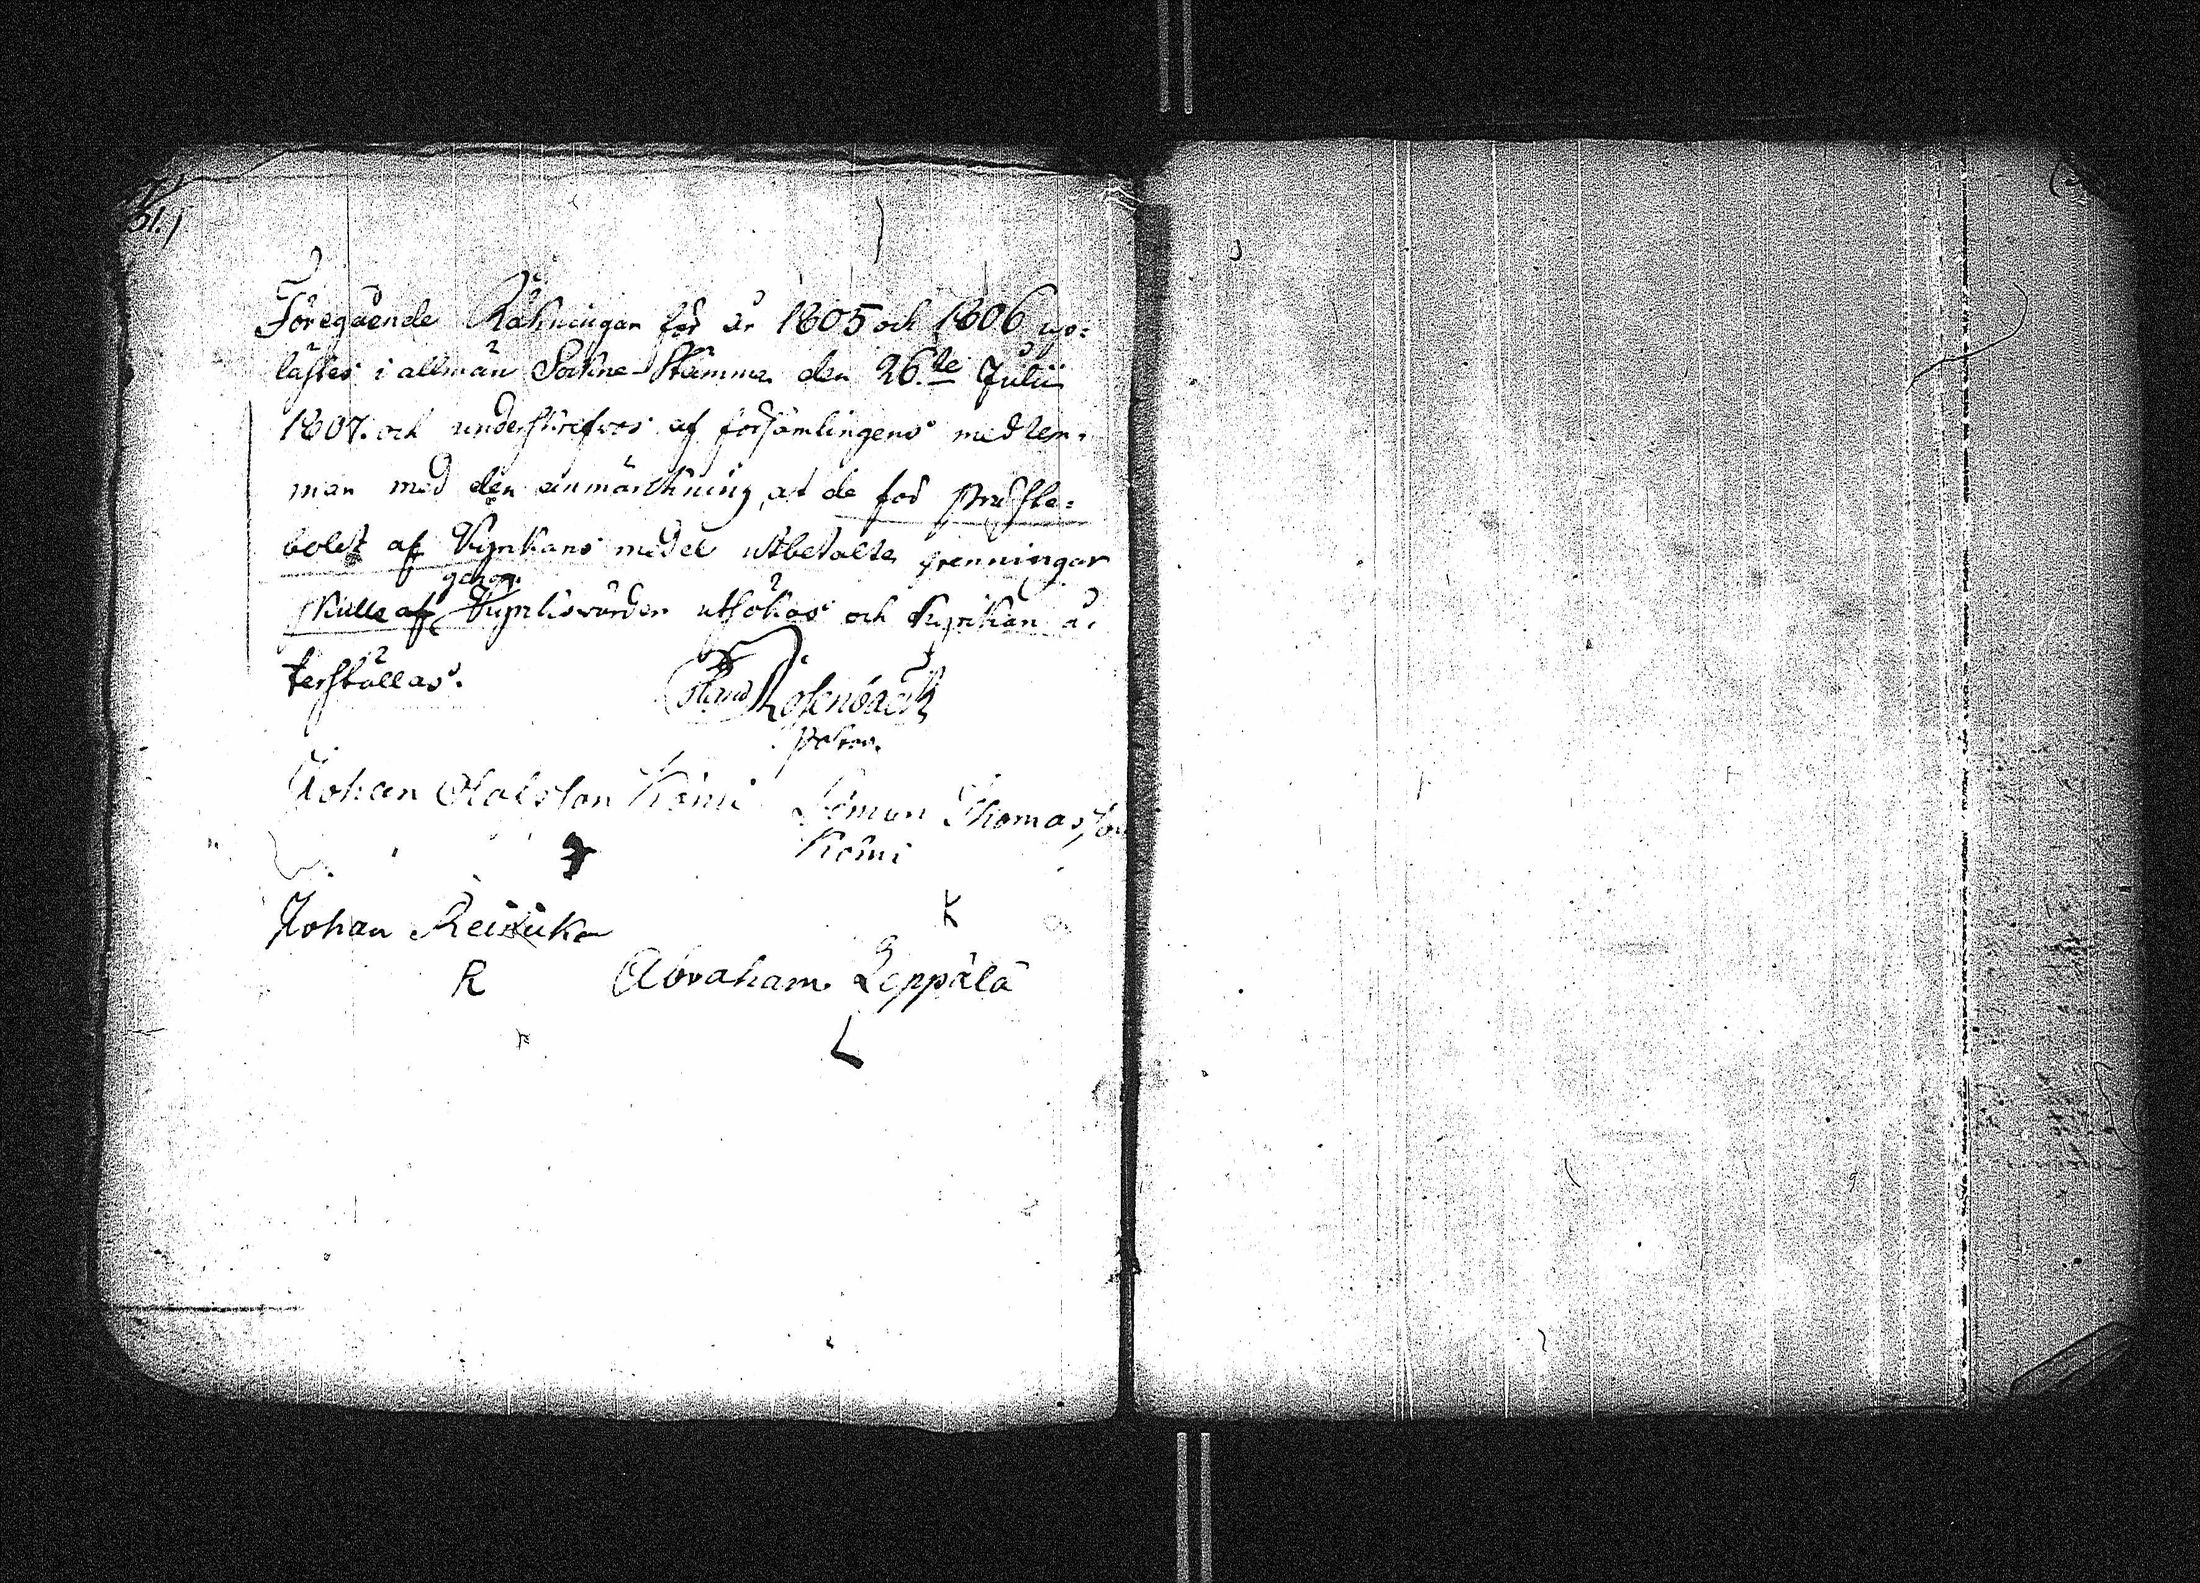 51.)
Föregående Räkningar för år 1805 och 1806 up=
lästes i allmän Sokne-Stämma den 26.te Julii
1807. och underskrefvos af församlingens medlem=
mar med den anmärkning, at de för Präste=
bolet af Kyrkans medel utbetalte penningar
genom
skulle af Kyrkiovärden utsökas och Kyrkan å=
terställas.
Rosenback
Johan Olofsson Kömi Simon Thomasson
Kömi
K
Johan Reinika
R
Abraham Leppälä
L